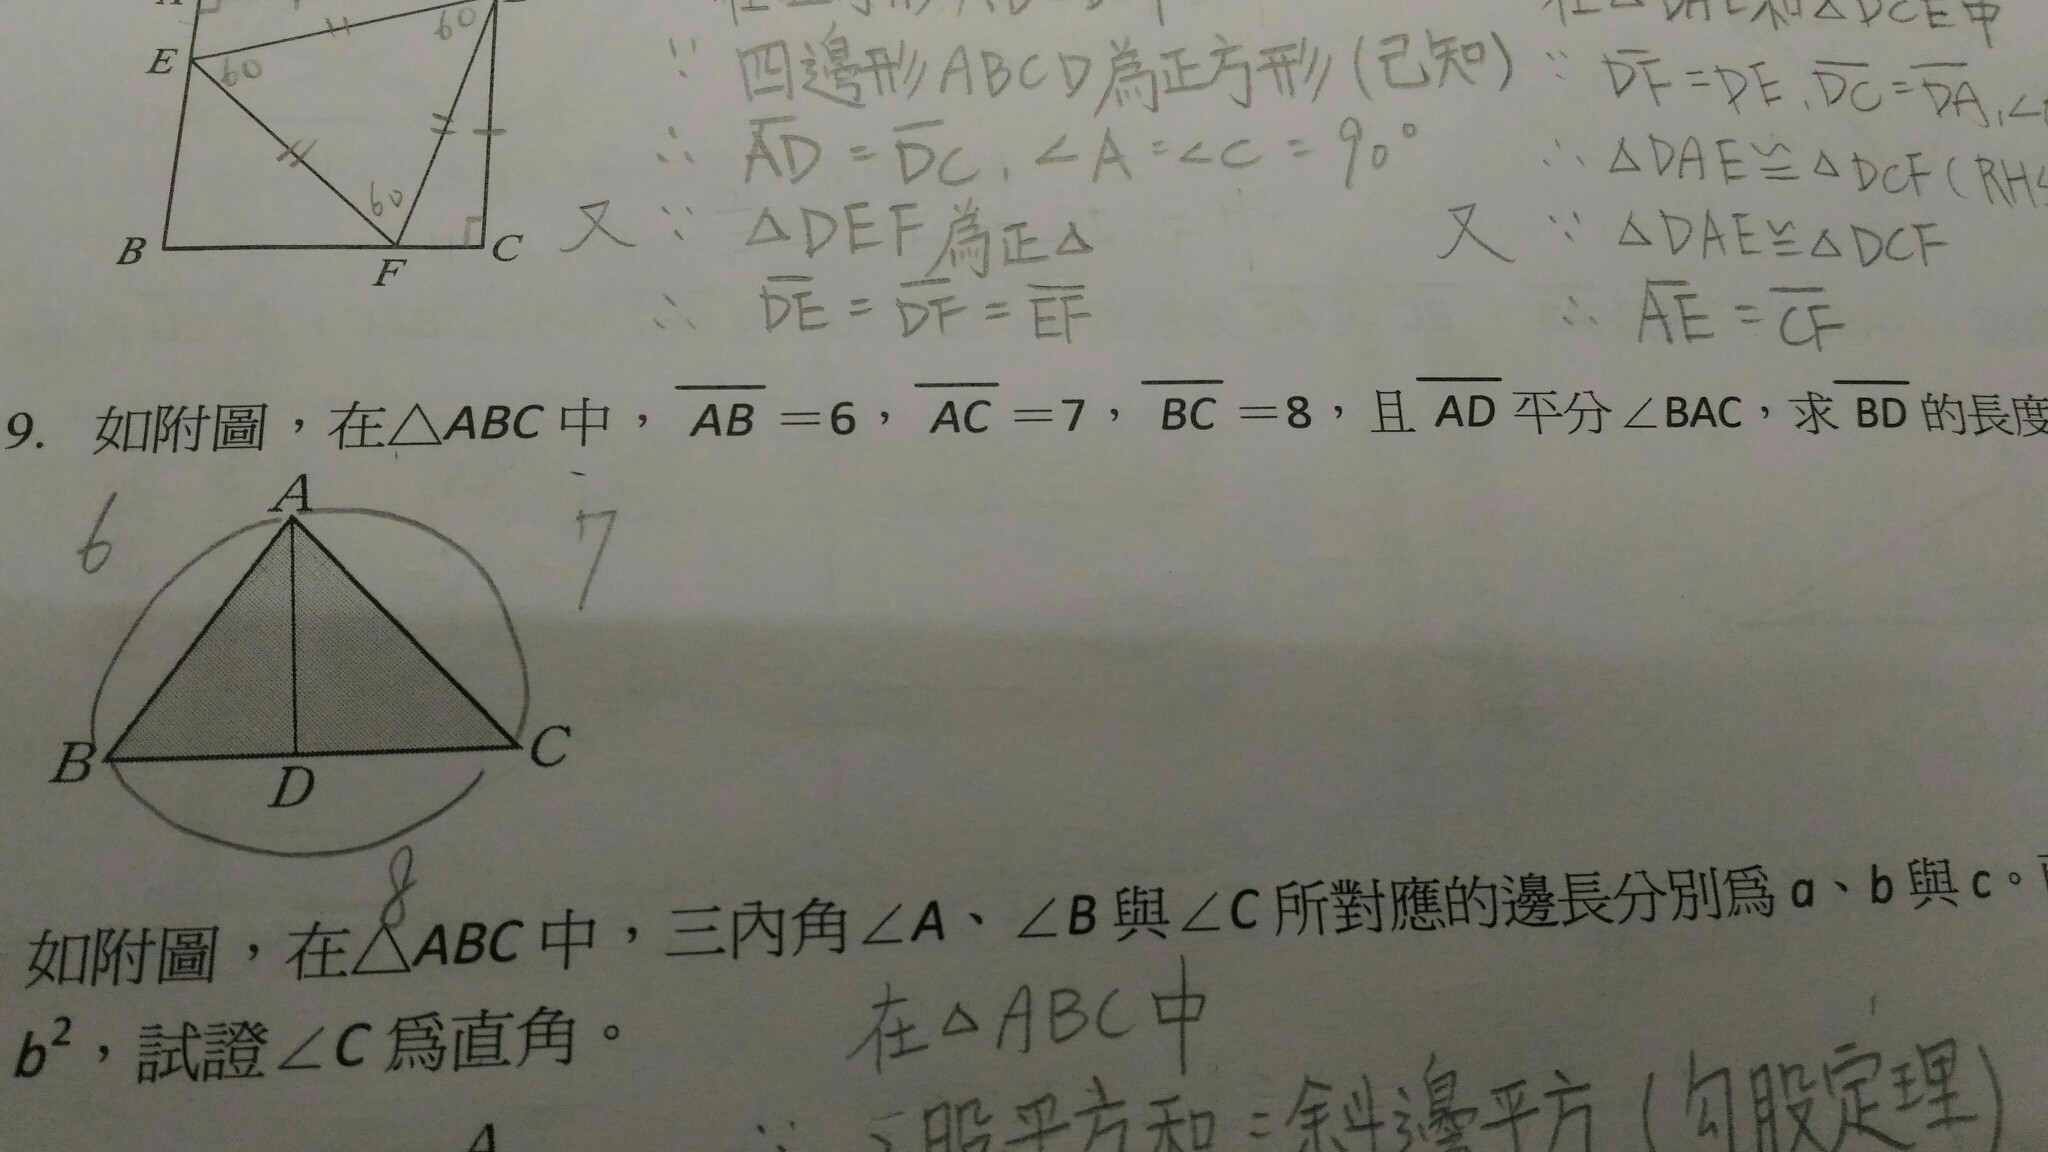 E 60 60
四邊形ABCD為正方形(已知)
∴ AD = DC , ∠A = ∠C = 90°
又 ∵ △DEF為正△
∴ DE = DF = EF
60
B F C
在△DAE和△DCE中
∵ DF = DE , DC = DA , ∠
∴ △DAE≅△DCF (RHS
又 ∵ △DAE≅△DCF
∴ AE = CF
9. 如附圖,在△ABC 中, AB =6, AC =7, BC =8,且 AD 平分∠BAC,求 BD 的長度
A
6 7
B D C
8
如附圖,在△ABC 中,三內角∠A、∠B 與∠C 所對應的邊長分別為 a、b 與 c。
b²,試證∠C 為直角。
在△ABC中
∵ 股平方和=斜邊平方(勾股定理)
A